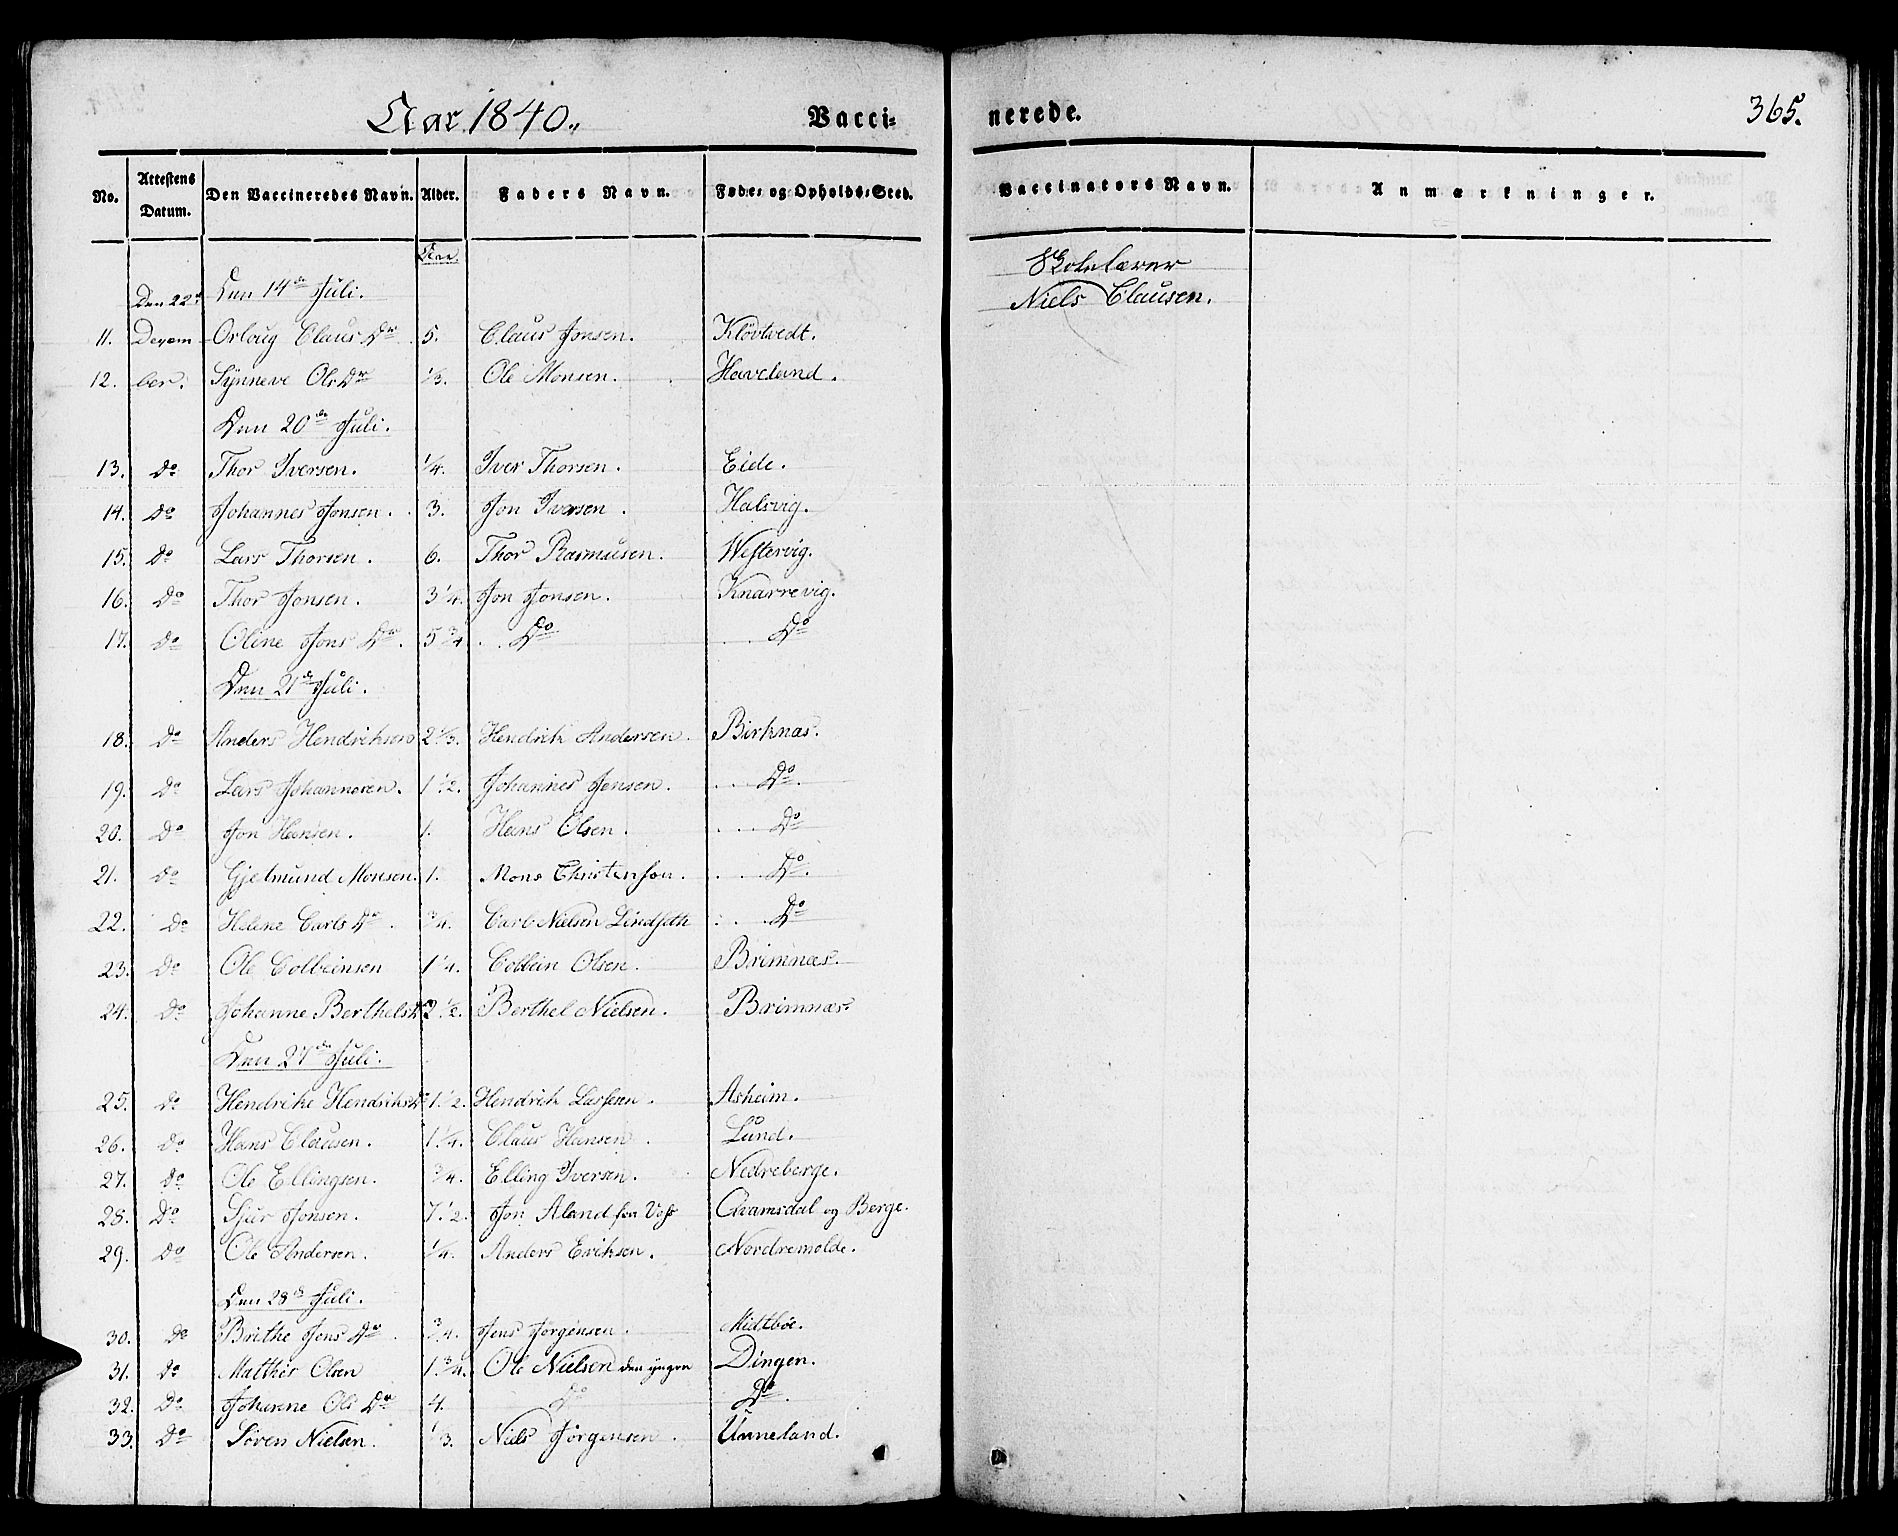 Aar 1840. Vacci= nerede. 365.
No. Attestens Datum. Den Vaccineredes Navn. Alder. Faders Navn. Føde= og Opholds=Sted. Vaccinators Navn. Anmærkninger.
Aar.
Den 22de Den 14de Juli. Skolelærer
Niels Clausen.
11. Decem Orloug Claus Dr 5. Claus Jonsen. Klövtvedt.
12. ber. Synneve Ols Dr 1/3. Ole Monsen. Haveland.
Den 20de Juli.
13. Do Thor Iversen. 1/4. Iver Thorsen. Eide.
14. Do Johannes Jonsen. 3. Jon Iversen. Halsvig.
15. Do Lars Thorsen. 6. Thor Rasmusen. Westervig.
16. Do Thor Jonsen. 3 1/4. Jon Jonsen. Knarrevig.
17. Do Oline Jons Dr. 5 3/4 Do Do
Den 21de Juli.
18. Do Anders Hendriksen 2 1/3. Hendrik Andersen. Birknæs.
19. Do Lars Johannesen. 1 1/2. Johannes Jensen. Do.
20. Do Jon Hansen. 1. Hans Olsen. Do
21. Do Gjelmund Monsen. 1. Mons Christensen. Do.
22. Do Helene Carls Dr. 3/4. Carl Nielsen Lindfath Do
23. Do Ole Colbeinsen 1 1/4. Colbein Olsen. Brimnæs.
24. Do Johanne Berthels Dr 2 1/2. Berthel Nielsen. Brimnæs.
Den 27de Juli.
25. Do Hendrike Hendriks Dr 1 1/2. Hendrik Lassen. Asheim.
26. Do Hans Clausen. 1 1/4. Claus Hansen. Lund.
27. Do Ole Ellingsen. 3/4. Elling Iversen. Nedreberge.
28. Do Sjur Jonsen. 7 1/2. Jon Aland fra Voss Gramsdal og Berge.
29. Do Ole Andersen. 1/4. Anders Eriksen. Nordremolde.
Den 28de Juli.
30. Do Brithe Jens Dr. 3/4. Jens Jørgensen. Midtböe.
31. Do Mathis Olsen 1 3/4. Ole Nielsen den yngre Dingen.
32. Do Johanne Ols Dr 4. Do Do.
33. Do Sören Nielsen. 1/3. Niels Jörgensen. Unneland.